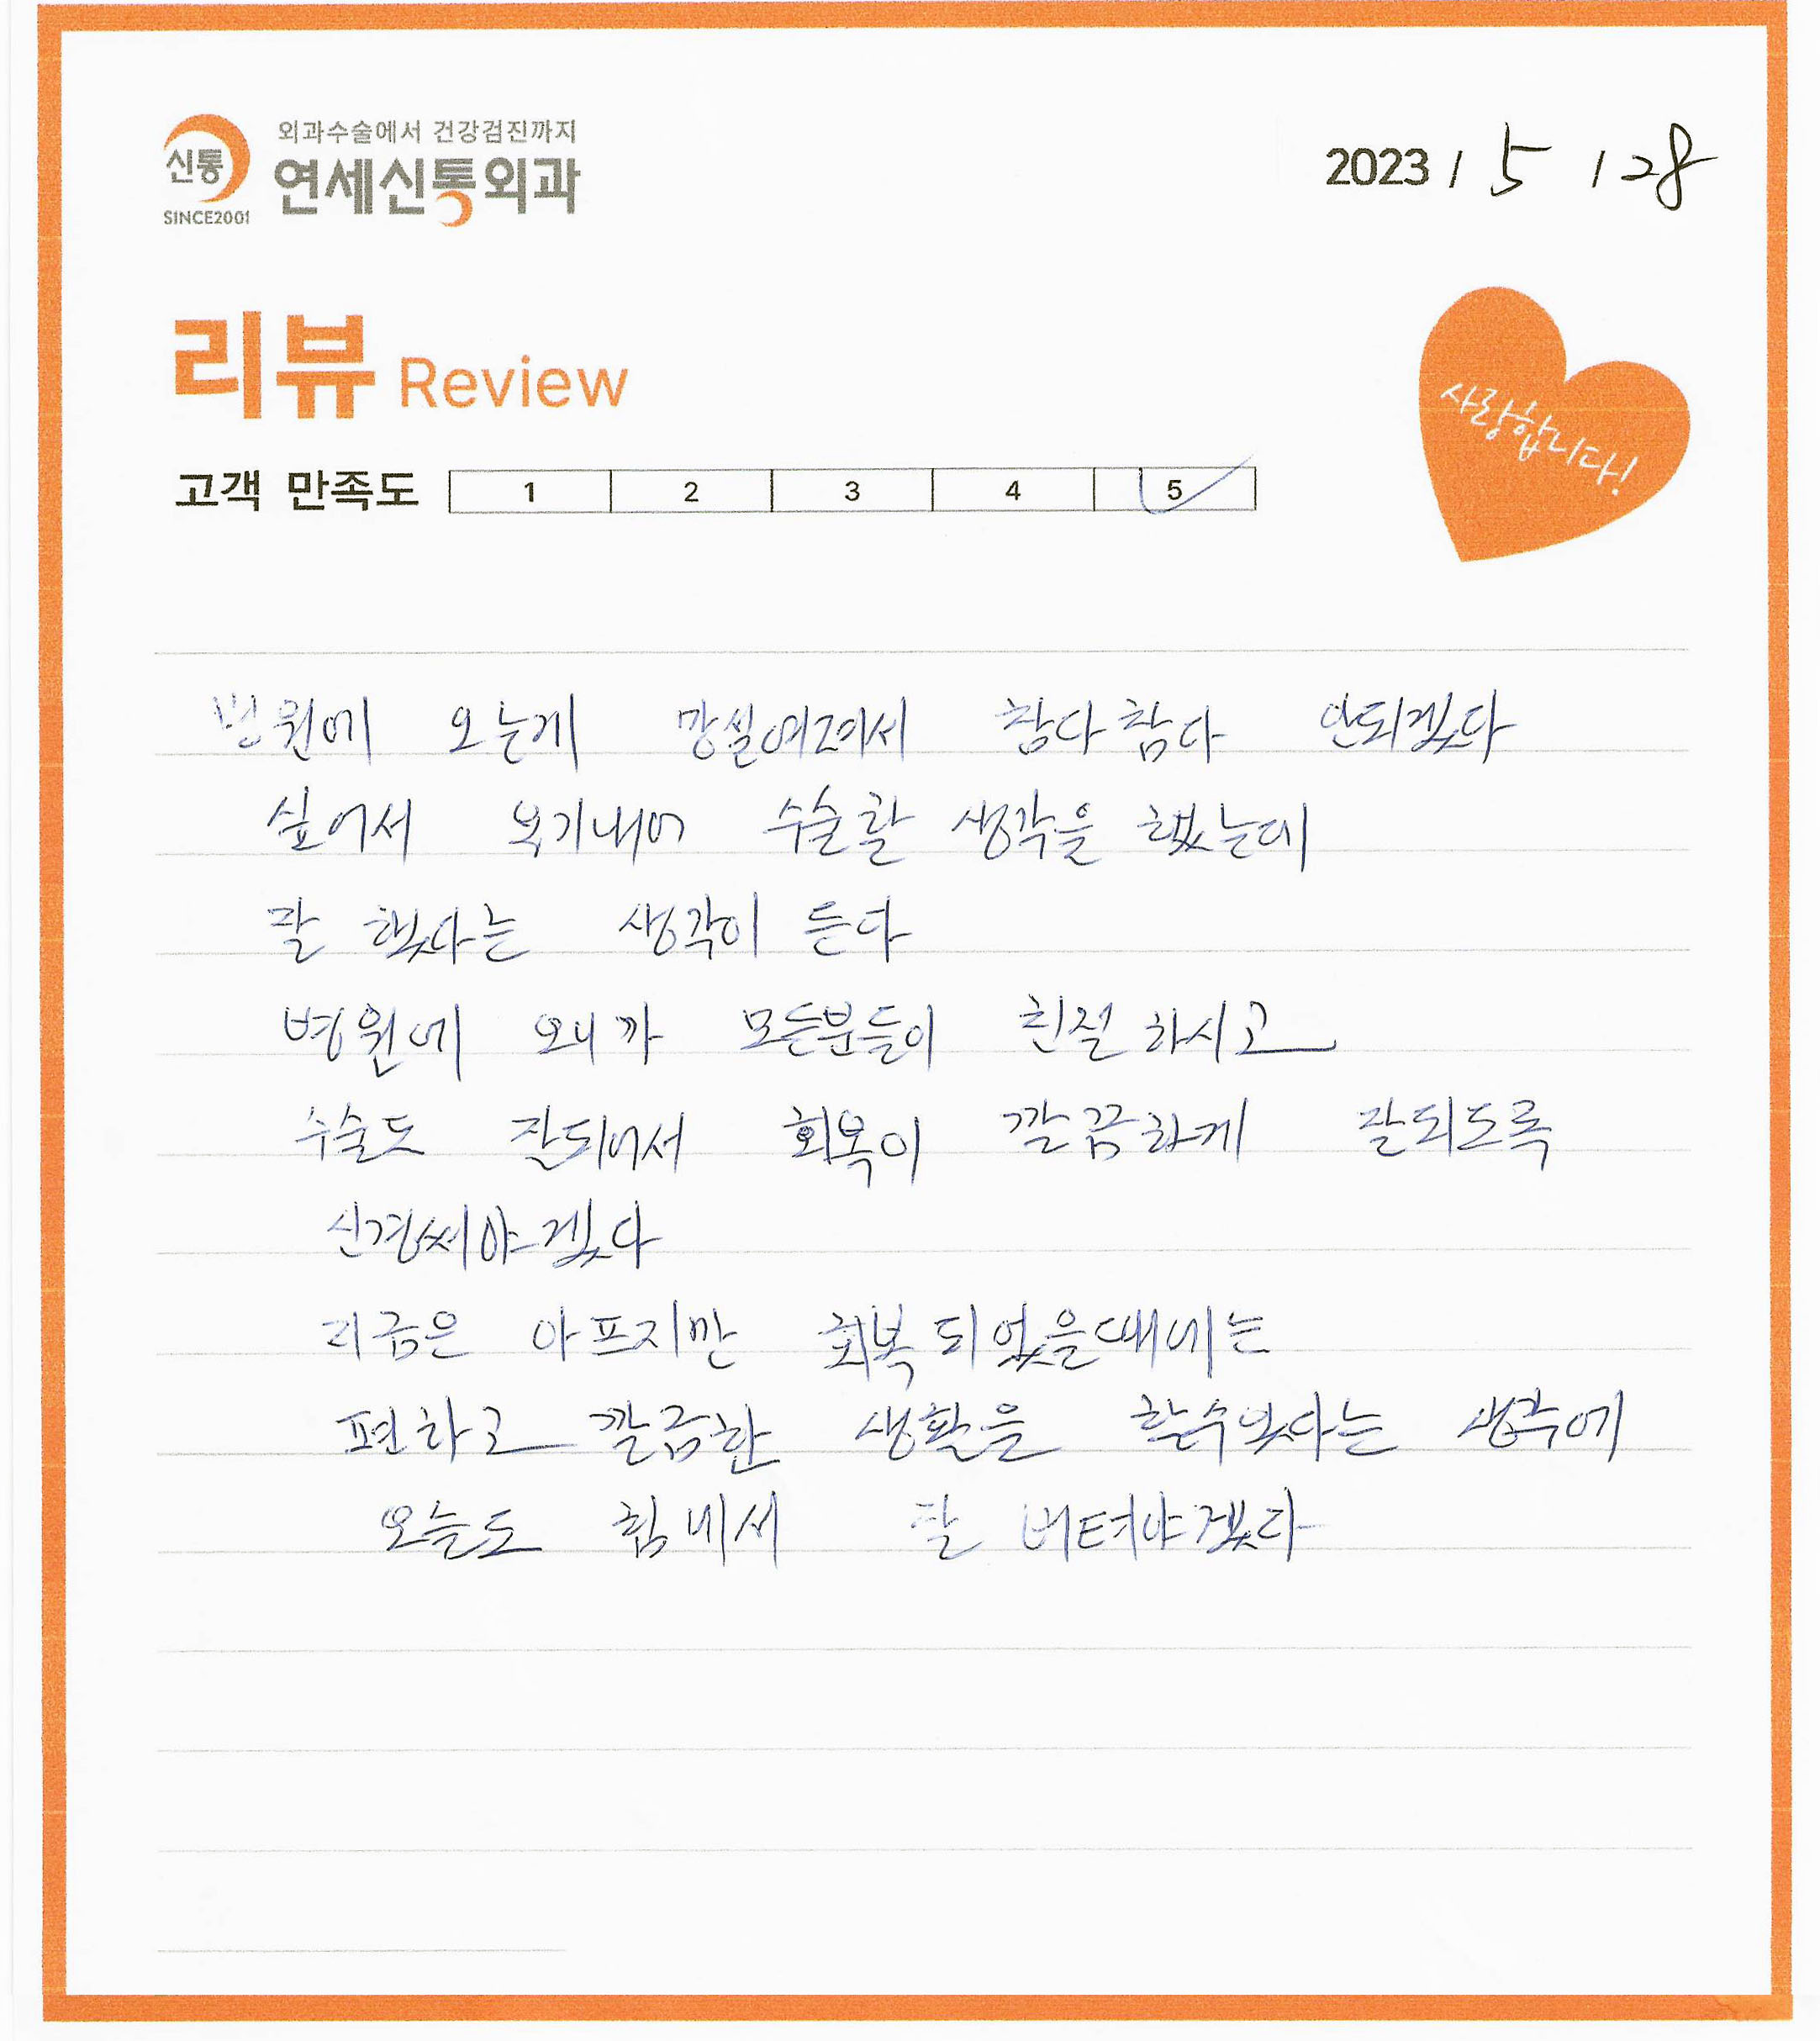 외과수술에서 건강검진까지
신통
연세신통외과
SINCE2001
2023 / 5 / 28
리뷰 Review
사랑합니다!
고객 만족도 1 2 3 4 5
병원에 오는게 망설여져서 참다참다 안되겠다
싶어서 용기내어 수술할 생각을 했는데
잘 했다는 생각이 든다
병원에 오니까 모든분들이 친절하시고
수술도 잘되어서 회복이 깔끔하게 잘되도록
신경써야겠다
지금은 아프지만 회복되었을때에는
편하고 깔금한 생활을 할수있다는 생각에
오늘도 힘내서 잘 버텨야겠다